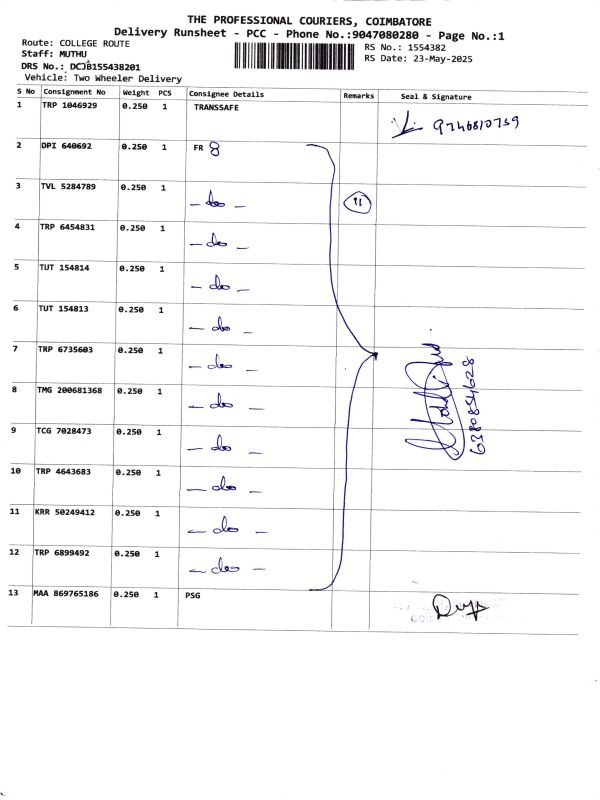 THE PROFESSIONAL COURIERS, COIMBATORE
Delivery Runsheet - PCC - Phone No.:9047080280 - Page No.:1
Route: COLLEGE ROUTE
Staff: MUTHU
DRS No.: DCJB155438201
Vehicle: Two Wheeler Delivery
RS No.: 1554382
RS Date: 23-May-2025
S No Consignment No Weight PCS Consignee Details Remarks Seal & Signature
1 TRP 1046929 0.250 1 TRANSSAFE
2 DPI 640692 0.250 1 FR 8
3 TVL 5284789 0.250 1 - do - 11
4 TRP 6454831 0.250 1 - do -
5 TUT 154814 0.250 1 - do -
6 TUT 154813 0.250 1 - do -
7 TRP 6735603 0.250 1 - do -
8 TMG 200681368 0.250 1 - do -
9 TCG 7028473 0.250 1 - do -
6380854628
10 TRP 4643683 0.250 1 - do -
11 KRR 50249412 0.250 1 - do -
12 TRP 6899492 0.250 1 - do -
13 MAA 869765186 0.250 1 PSG